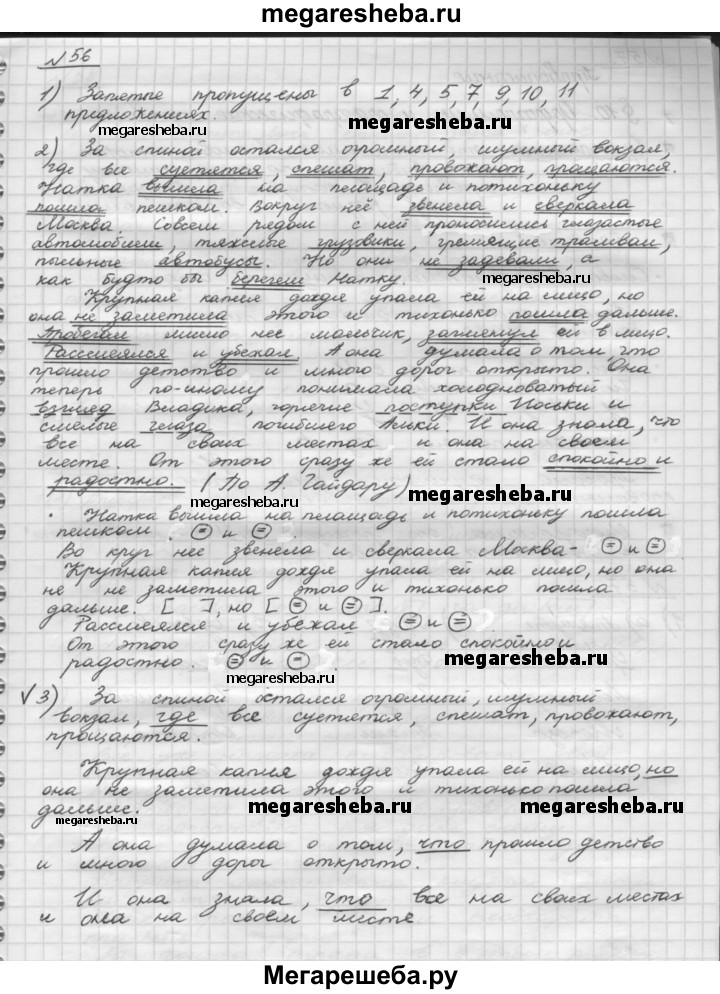 megaresheba.ru
№56
1) Запятые пропущены в 1, 4, 5, 7, 9, 10, 11
предложениях.
megaresheba.ru
megaresheba.ru
2) За спиной остался огромный, шумный вокзал,
где все суетятся, спешат, провожают, прощаются.
Натка вышла на площадь и потихоньку
пошла пешком. Вокруг неё звенела и сверкала
Москва. Совсем рядом с ней проносились глазастые
автомобили, тяжелые грузовики, гремящие трамваи,
пыльные автобусы. Но они не задевали, а
как будто бы берегли Натку.
megaresheba.ru
Крупная капля дождя упала ей на лицо, но
она не заметила этого и тихонько пошла дальше.
Пробегал мимо нее мальчик, заглянул ей в лицо.
Рассмеялся и убежал. А она думала о том, что
прошло детство и много дорог открыто. Она
теперь по-иному понимала холодноватый
взгляд Владика, горячие поступки Иоськи и
смелые глаза погибшего Альки. И она знала, что
все на своих местах и она на своем
месте. От этого сразу же ей стало спокойно и
радостно. (По А. Гайдару)
megaresheba.ru
megaresheba.ru
Натка вышла на площадь и потихоньку пошла
пешком. = и =.
Во круг нее звенела и сверкала Москва - = и =
Крупная капля дождя упала ей на лицо, но она
не не заметила этого и тихонько пошла
дальше. [ ], но [ = и = ].
Рассмеялся и убежал = и =
От этого сразу же ей стало спокойно и
радостно. = и =.
megaresheba.ru
megaresheba.ru
√ 3) За спиной остался огромный, шумный
вокзал, где все суетятся, спешат, провожают,
прощаются.
Крупная капля дождя упала ей на лицо, но
она не заметила этого и тихонько пошла
дальше.
megaresheba.ru
megaresheba.ru
megaresheba.ru
А она думала о том, что прошло детство
и много дорог открыто.
И она знала, что все на своих местах
и она на своём месте
Мегарешеба.ру